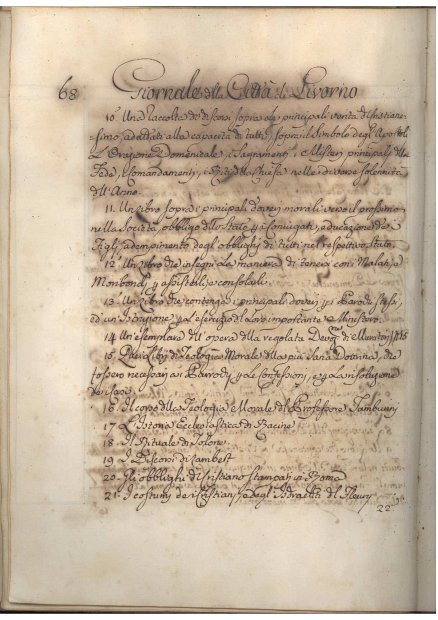 68 Giornale della Città di Livorno
10. Una raccolta di discorsi sopra le principali verità di
adattati alla capacità di tutti, sopra il Simbolo degli Apostoli
L'Orazione Domenicale, i Sagramenti, i Misteri principali della
Fede, i Comandamenti, nelle diverse solennità
dell'Anno.
11. Un libro sopra i principali doveri morali verso il prossimo
nella Società, obbligo dello Stato Coniugati, educazione de
Figli, adempimento degli obblighi di tutti nel respettivo stato.
12. Un libro che insegni la maniera di tenersi con i Malati, e
Moribondi assisterli, e consolarli.
13. Un libro che contenga i principali doveri Parochi stessi,
ed un Istruzione l'esercizio di loro importante Ministero.
14. Un esemplare dell'opera della regolata Devoz.ne di Muratori
15. Più Libri di Teologia Morale della più sana Dottrina, che
fossero necessari ai Parochi le Confessioni, e la risoluzione
dei casi.
16. Il corso della Teologia Morale di Professore Tamburini
17. L'Istoria Ecclesiastica di Racine
18. Il Rituale di Tolone
19. I Discorsi di Lambert
20. Gli obblighi di Cristiano stampati in Roma
21. I costumi dei Cristiani, e degl'Isdraeliti del Fleury
22